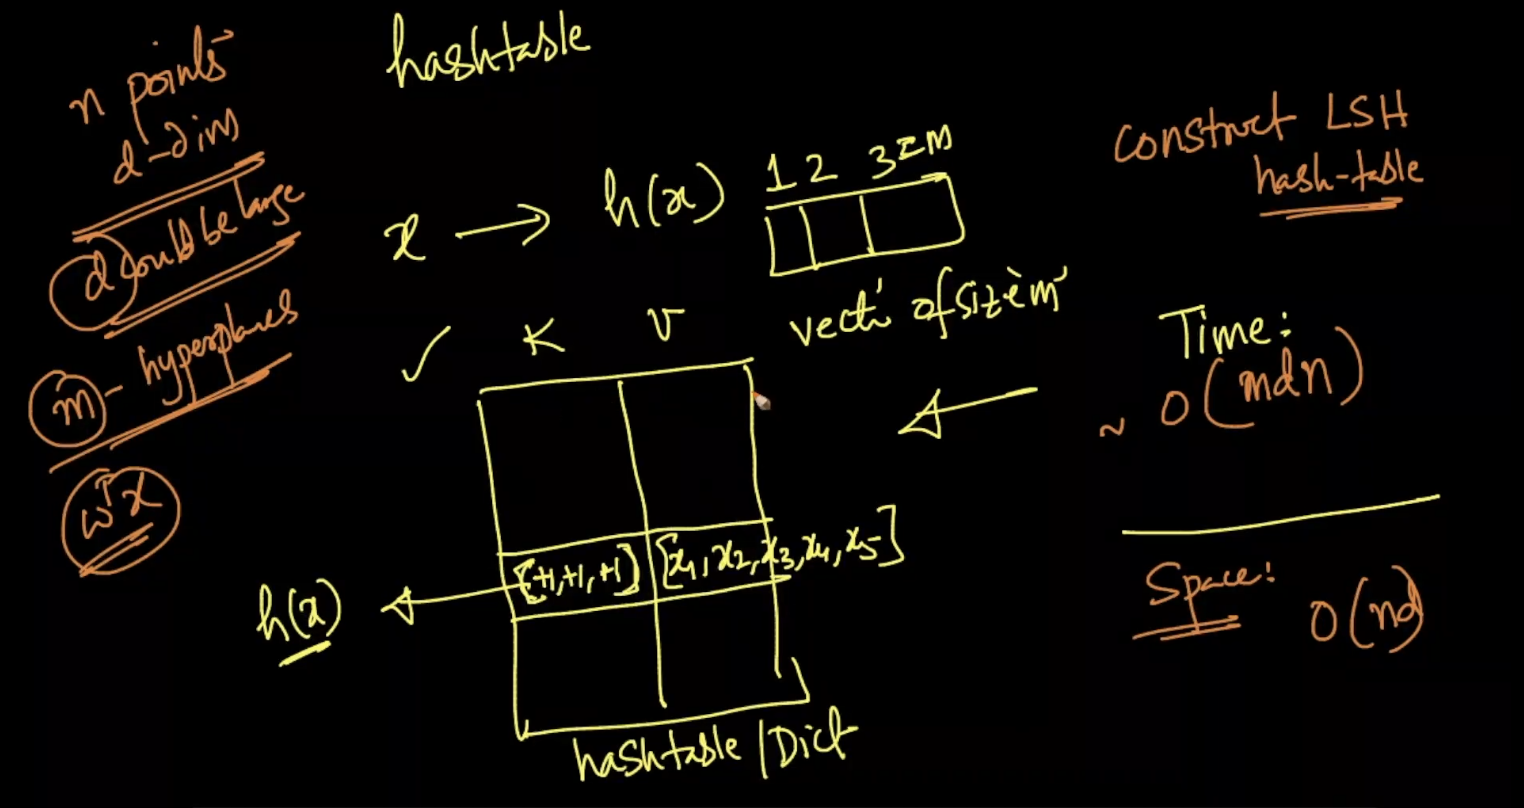 hashtable
n points
d-dim
d could be large
m - hyperplanes
wᵀx
x → h(x)
1 2 3=m
vect' of size 'm'
✓ K V
[+1,+1,+1] [x₁,x₂,x₃,x₄,x₅]
h(x)
hashtable / Dict
construct LSH
hash-table
Time:
~ O(mdn)
Space:
O(nd)